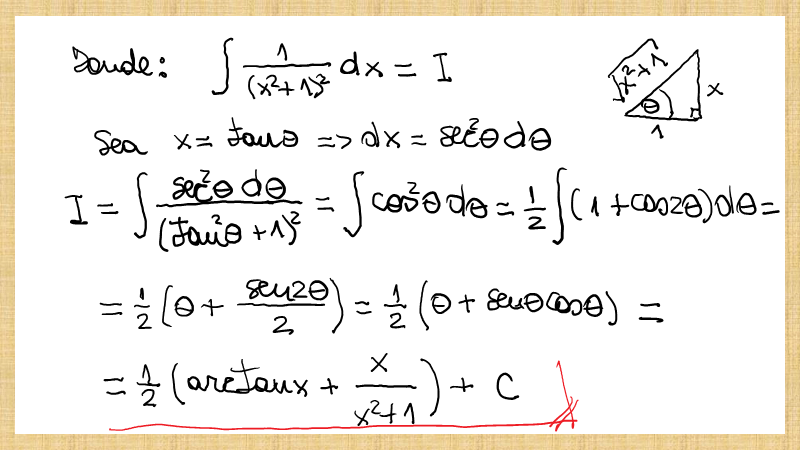 Donde: ∫ 1/(x²+1)² dx = I
√x²+1 x θ 1
Sea x = tanθ => dx = sec²θ dθ
I = ∫ sec²θ dθ/(tan²θ + 1)² = ∫ cos²θ dθ = 1/2 ∫ (1 + cos2θ) dθ =
= 1/2 (θ + sen2θ/2) = 1/2 (θ + senθ cosθ) =
= 1/2 (arctanx + x/(x²+1)) + C